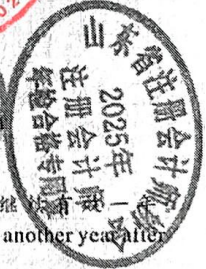 山东省注册会计师协会
2025年
注册会计师
年检合格专用章
继续有效一年
another year after